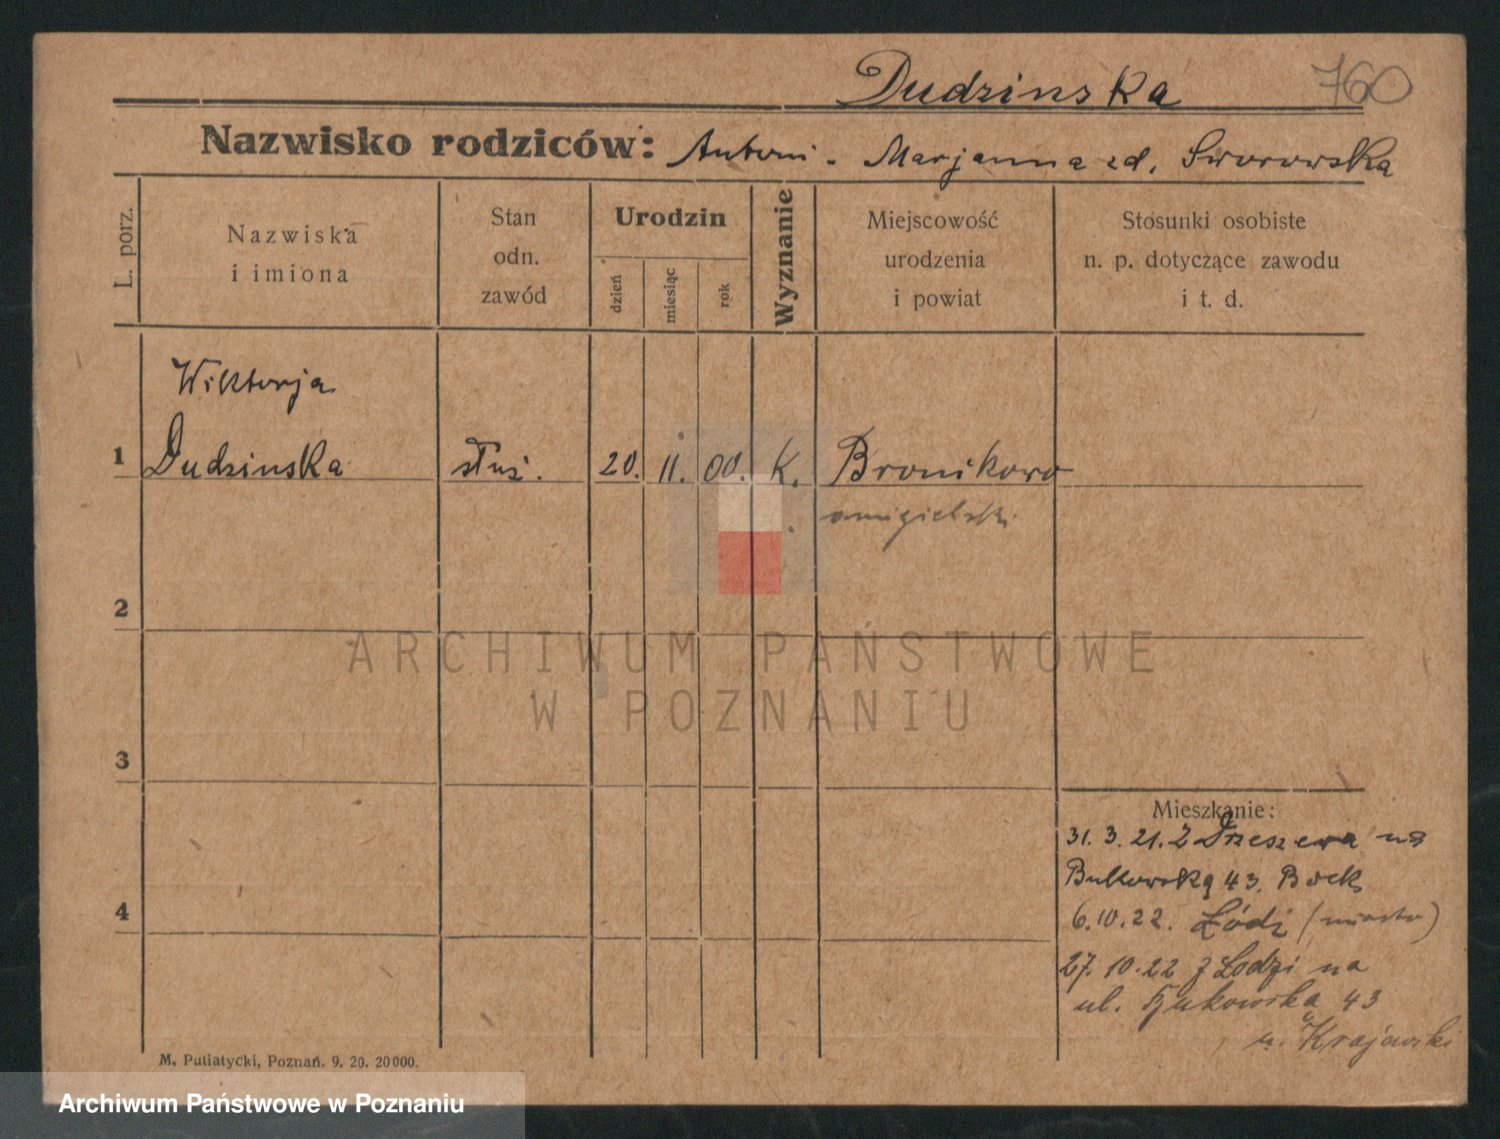 Dudzinska 760
Nazwisko rodziców: Antoni - Marjanna zd. Sworowska
L. porz.
Nazwiska
i imiona
Stan
odn.
zawód
Urodzin
dzień
miesiąc
rok
Wyznanie
Miejscowość
urodzenia
i powiat
Stosunki osobiste
n. p. dotyczące zawodu
i t. d.
Wiktorja
1 Dudzinska służ. 20. 11. 00. K. Bronikowo
śmigielski
2
ARCHIWUM PAŃSTWOWE
W POZNANIU
3
Mieszkanie:
31. 3. 21. Z na
Bukowską 43. Bock
4
6.10.22. Łódź (miasto)
27.10.22 z Lodzi na
ul. Bukowska 43
u. Krajewski
M. Putiatycki, Poznań. 9. 20. 20000.
Archiwum Państwowe w Poznaniu